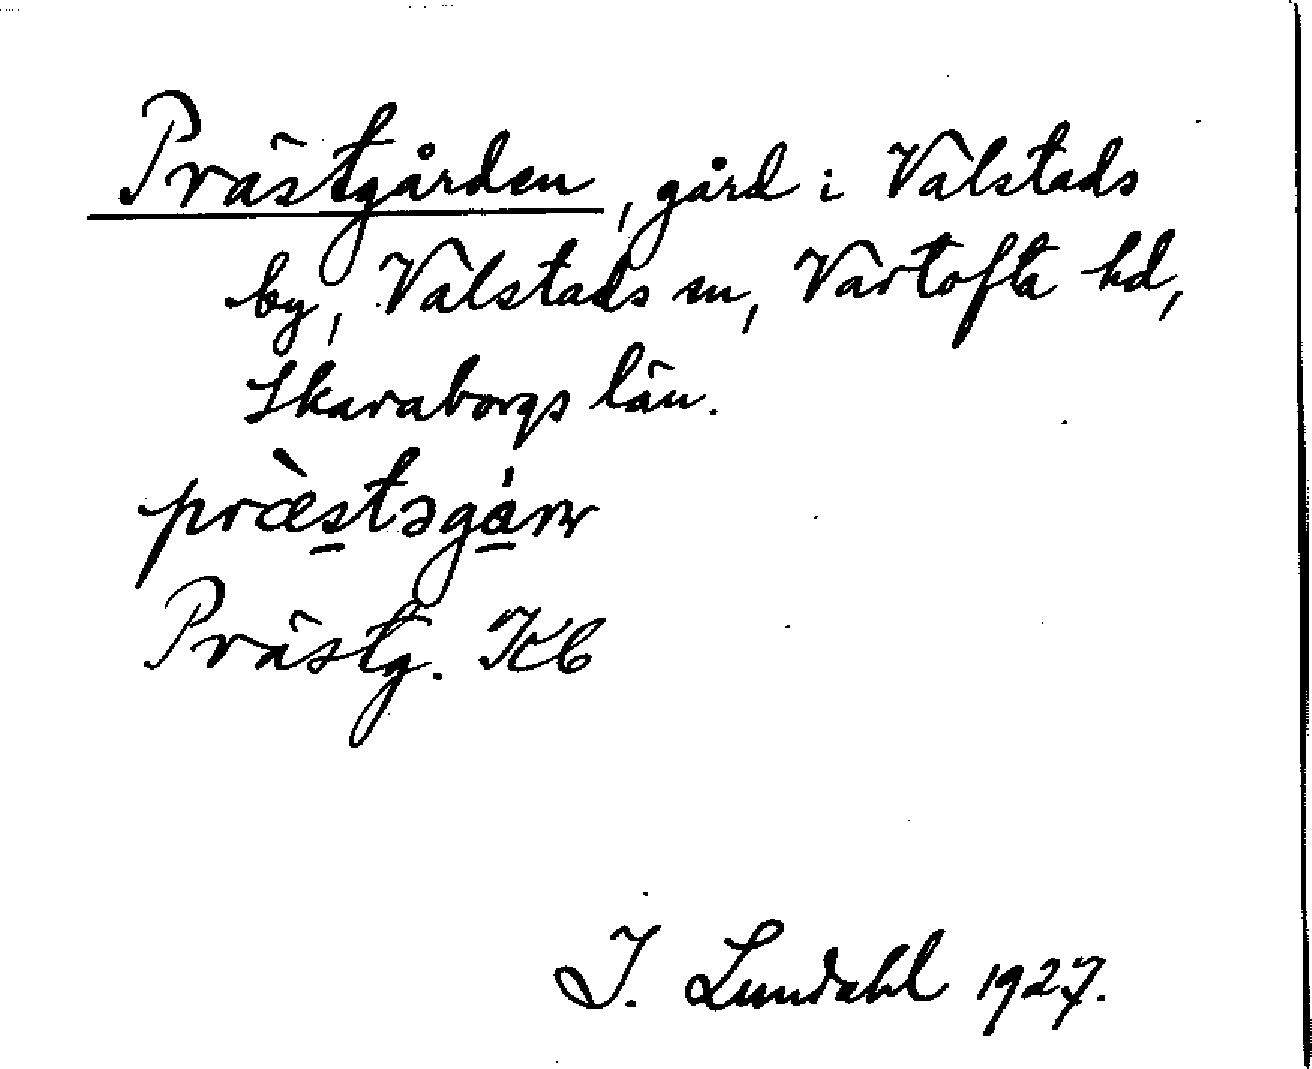 Prästgården, gård i Valstads
by, Valstads sn, Vartofta hd,
Skaraborgs län.
præ̀stəgàrn
Prästg. KB
I. Lundahl 1927.